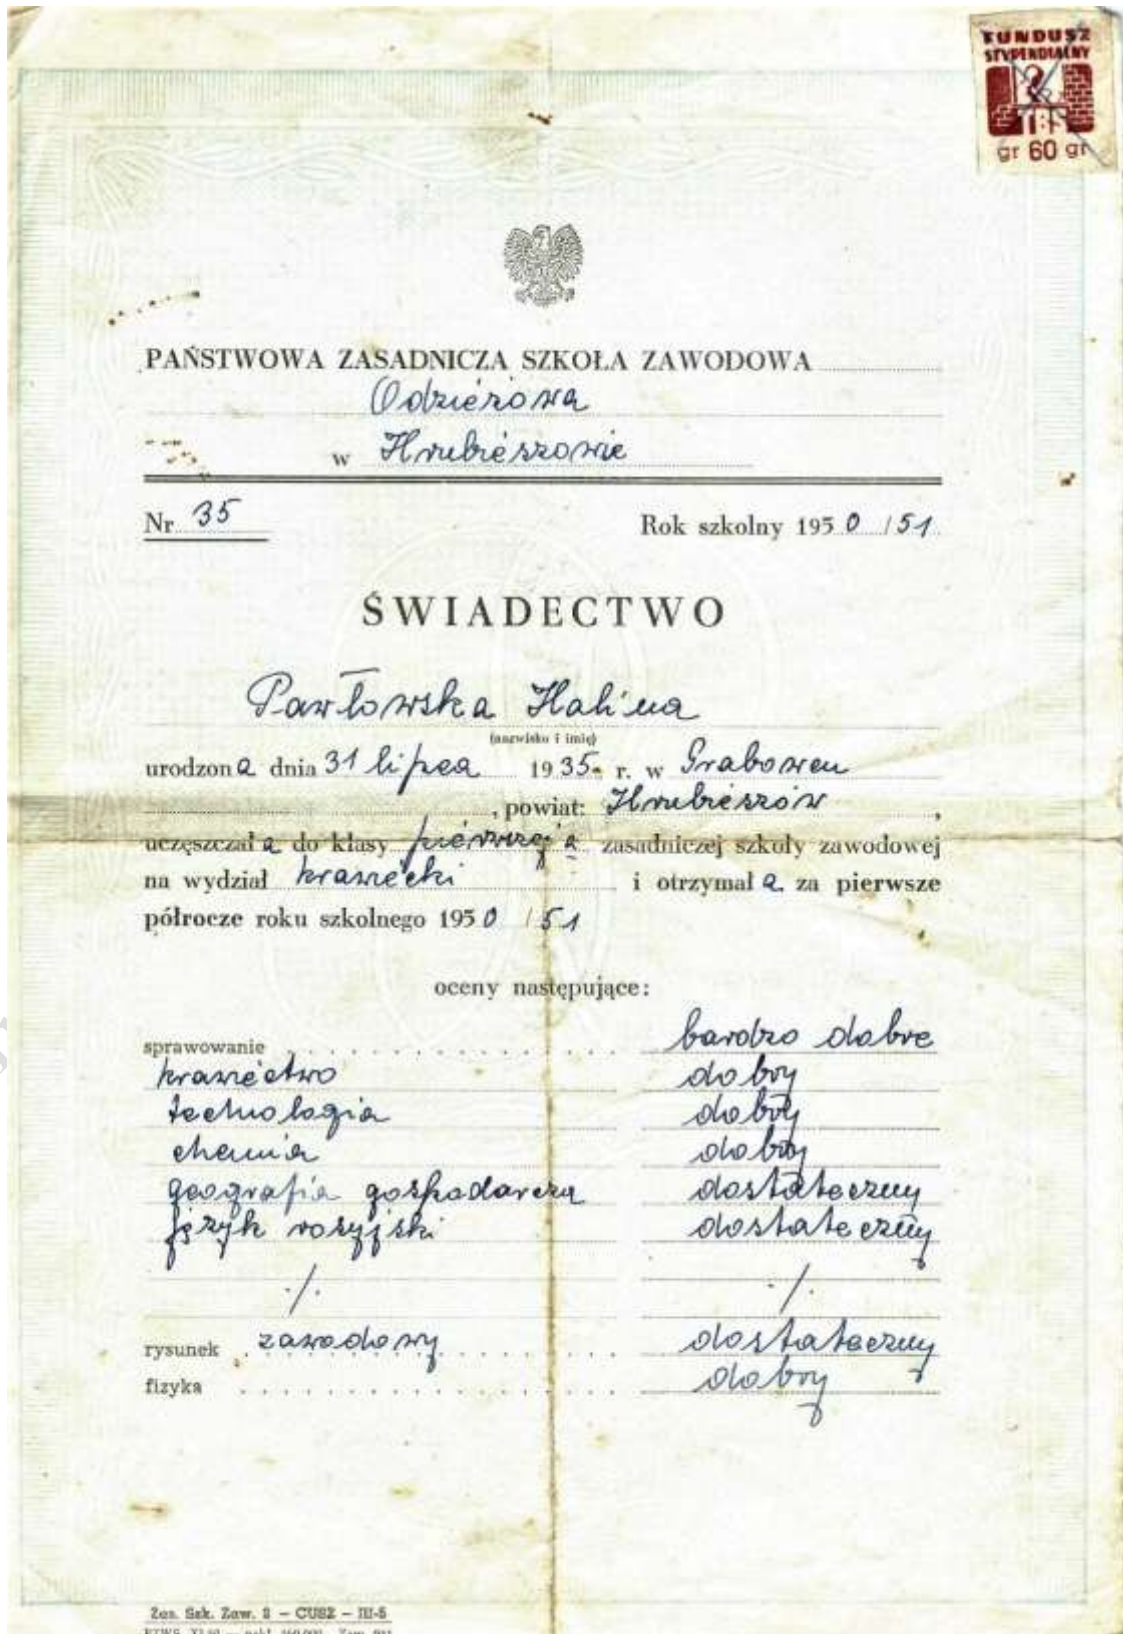 FUNDUSZ
STYPENDIALNY
TBS
gr 60 gr
PAŃSTWOWA ZASADNICZA SZKOŁA ZAWODOWA
Odzieżowa
w Hrubieszowie
Nr 35 Rok szkolny 1950/51
ŚWIADECTWO
Pawłowska Halina
(nazwisko i imię)
urodzona dnia 31 lipca 1935 r. w Grabowcu
, powiat: Hrubieszów,
uczęszczała do klasy zasadniczej szkoły zawodowej
na wydział krawiecki i otrzymała za pierwsze
półrocze roku szkolnego 1950/51
oceny następujące:
sprawowanie bardzo dobre
krawiectwo dobry
technologia dobry
chemia dobry
geografia gospodarcza dostateczny
język rosyjski dostateczny
./. ./.
rysunek zawodowy dostateczny
fizyka dobry
Zas. Szk. Zaw. 2 – CUSZ – III-5